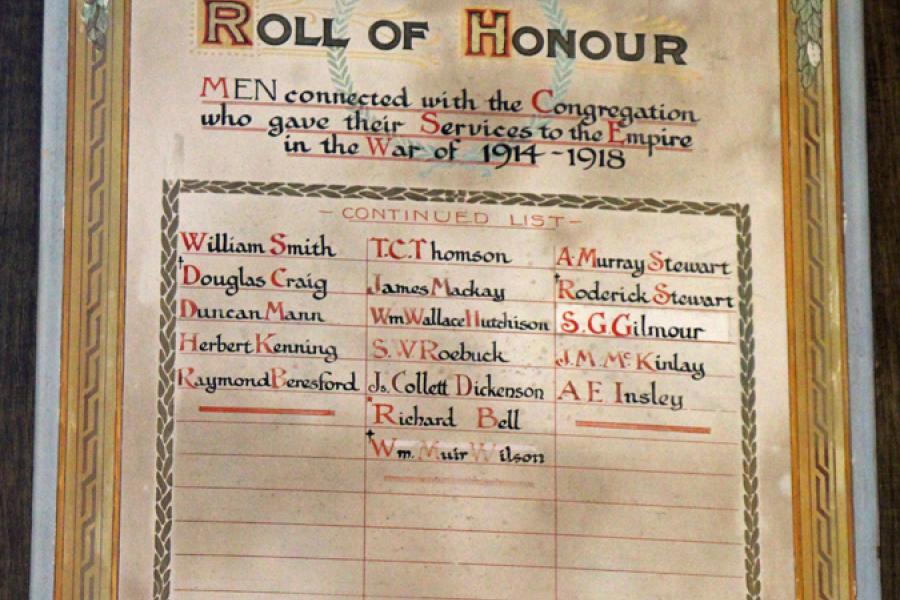 ROLL OF HONOUR
MEN connected with the Congregation
who gave their Services to the Empire
in the War of 1914-1918
- CONTINUED LIST -
William Smith
†Douglas Craig
Duncan Mann
Herbert Kenning
Raymond Beresford
T.C.Thomson
James Mackay
Wm Wallace Hutchison
S.W Roebuck
Js. Collett Dickenson
Richard Bell
†Wm. Muir Wilson
A. Murray Stewart
†Roderick Stewart
S.G.Gilmour
J.M. McKinlay
A E Insley